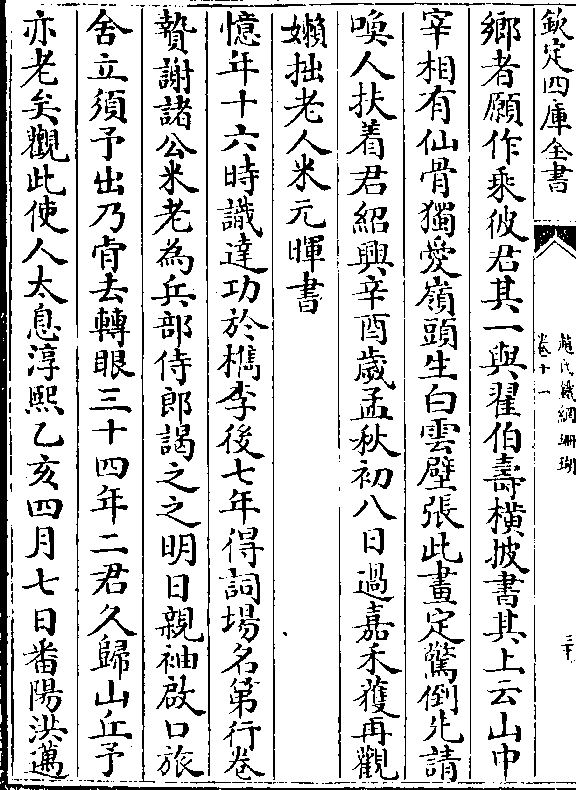 欽定四庫全書
趙氏鐵網珊瑚
卷十一
三十
鄉者願作乘彼君其一與翟伯壽橫披書其上云山中
宰相有仙骨獨愛嶺頭生白雲壁張此畫定驚倒先請
喚人扶着君紹興辛酉歲孟秋初八日過嘉禾獲再觀
嬾拙老人米元暉書
憶年十六時識達功於檇李後七年得詞場名第行卷
贄謝諸公米老為兵部侍郎謁之之明日親袖啟口旅
舍立須予出乃肯去轉眼三十四年二君久歸山丘予
亦老矣觀此使人太息淳熙乙亥四月七日番陽洪邁